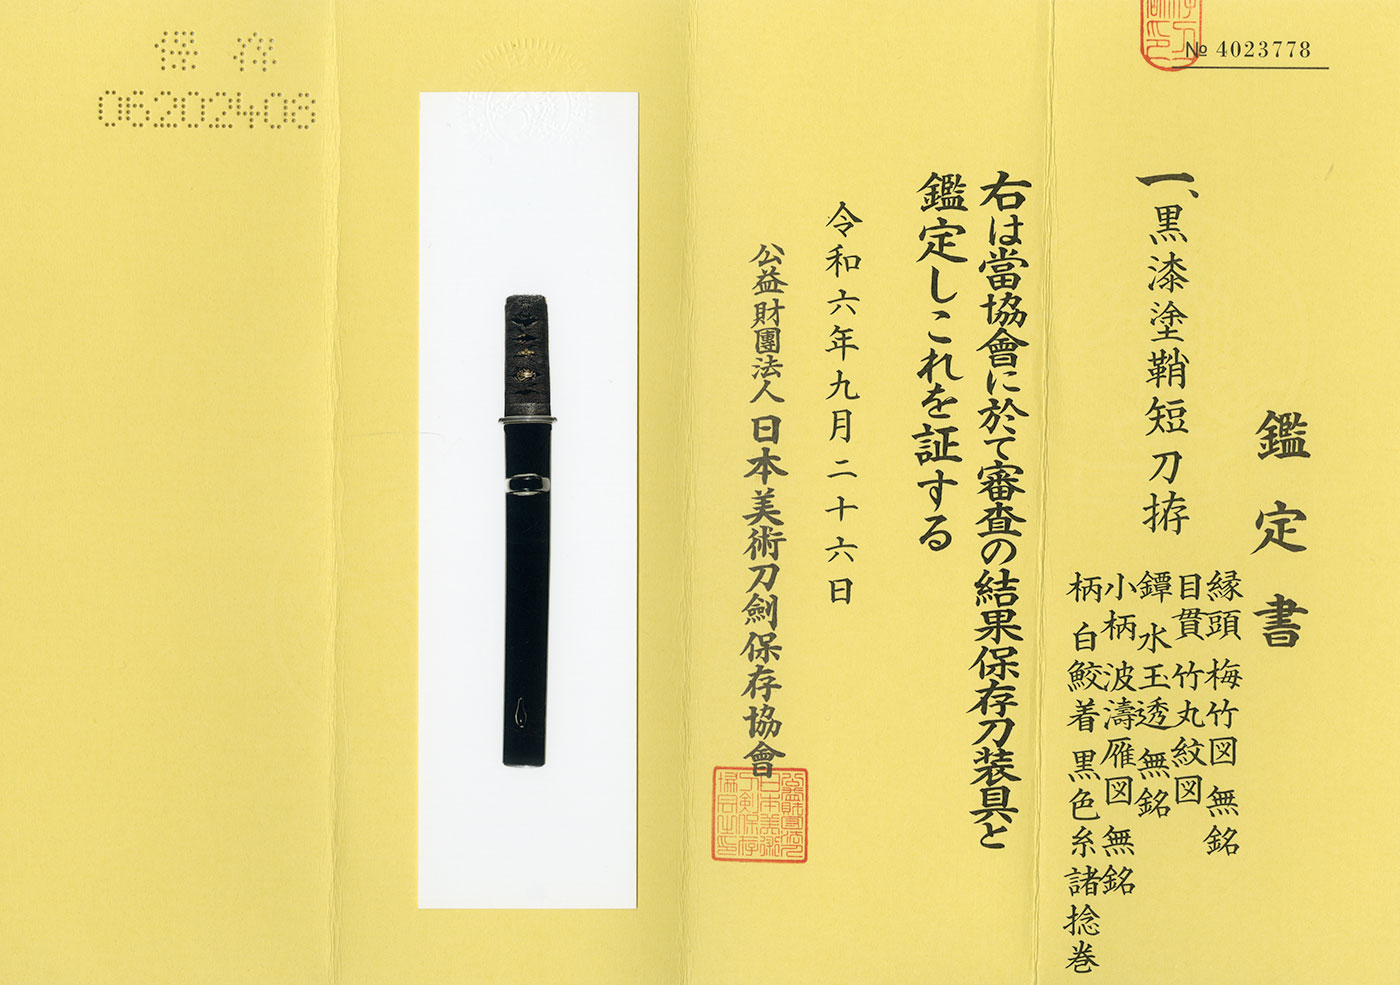 № 4023778
鑑定書
一、黒漆塗鞘短刀拵
縁頭 梅竹図 無銘
目貫 竹丸紋図
鐔 水玉透 無銘
小柄 波濤雁図 無銘
柄 白鮫着 黒色糸諸捻巻
右は當協會に於て審査の結果保存刀装具と
鑑定しこれを証する
令和六年九月二十六日
公益財團法人 日本美術刀劍保存協會
保存
06202408